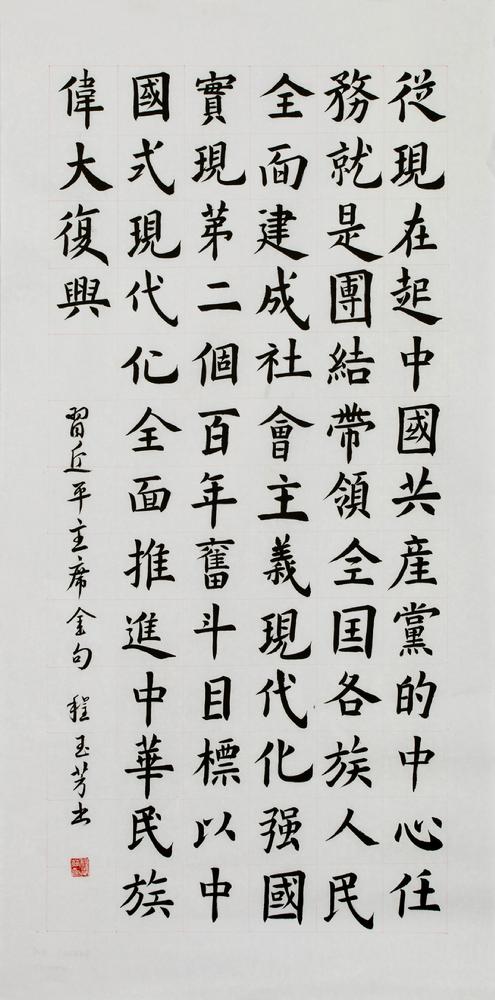 從現在起中國共産黨的中心任
務就是團結帶領全国各族人民
全面建成社會主義現代化强國
實現苐二個百年奮斗目標以中
國式現代化全面推進中華民族
偉大復興
習近平主席金句 程玉芳书